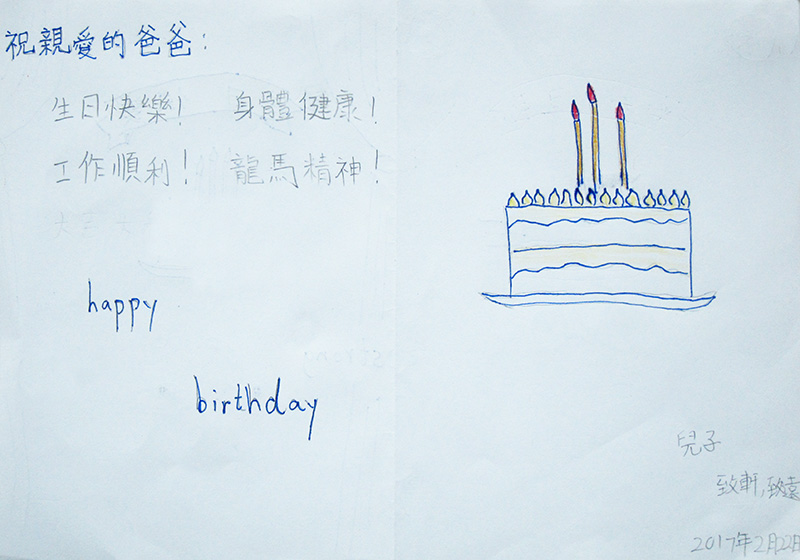 祝親愛的爸爸:
生日快樂! 身體健康!
工作順利! 龍馬精神!
happy
birthday
兒子
致軒,致遠
2017年2月22日